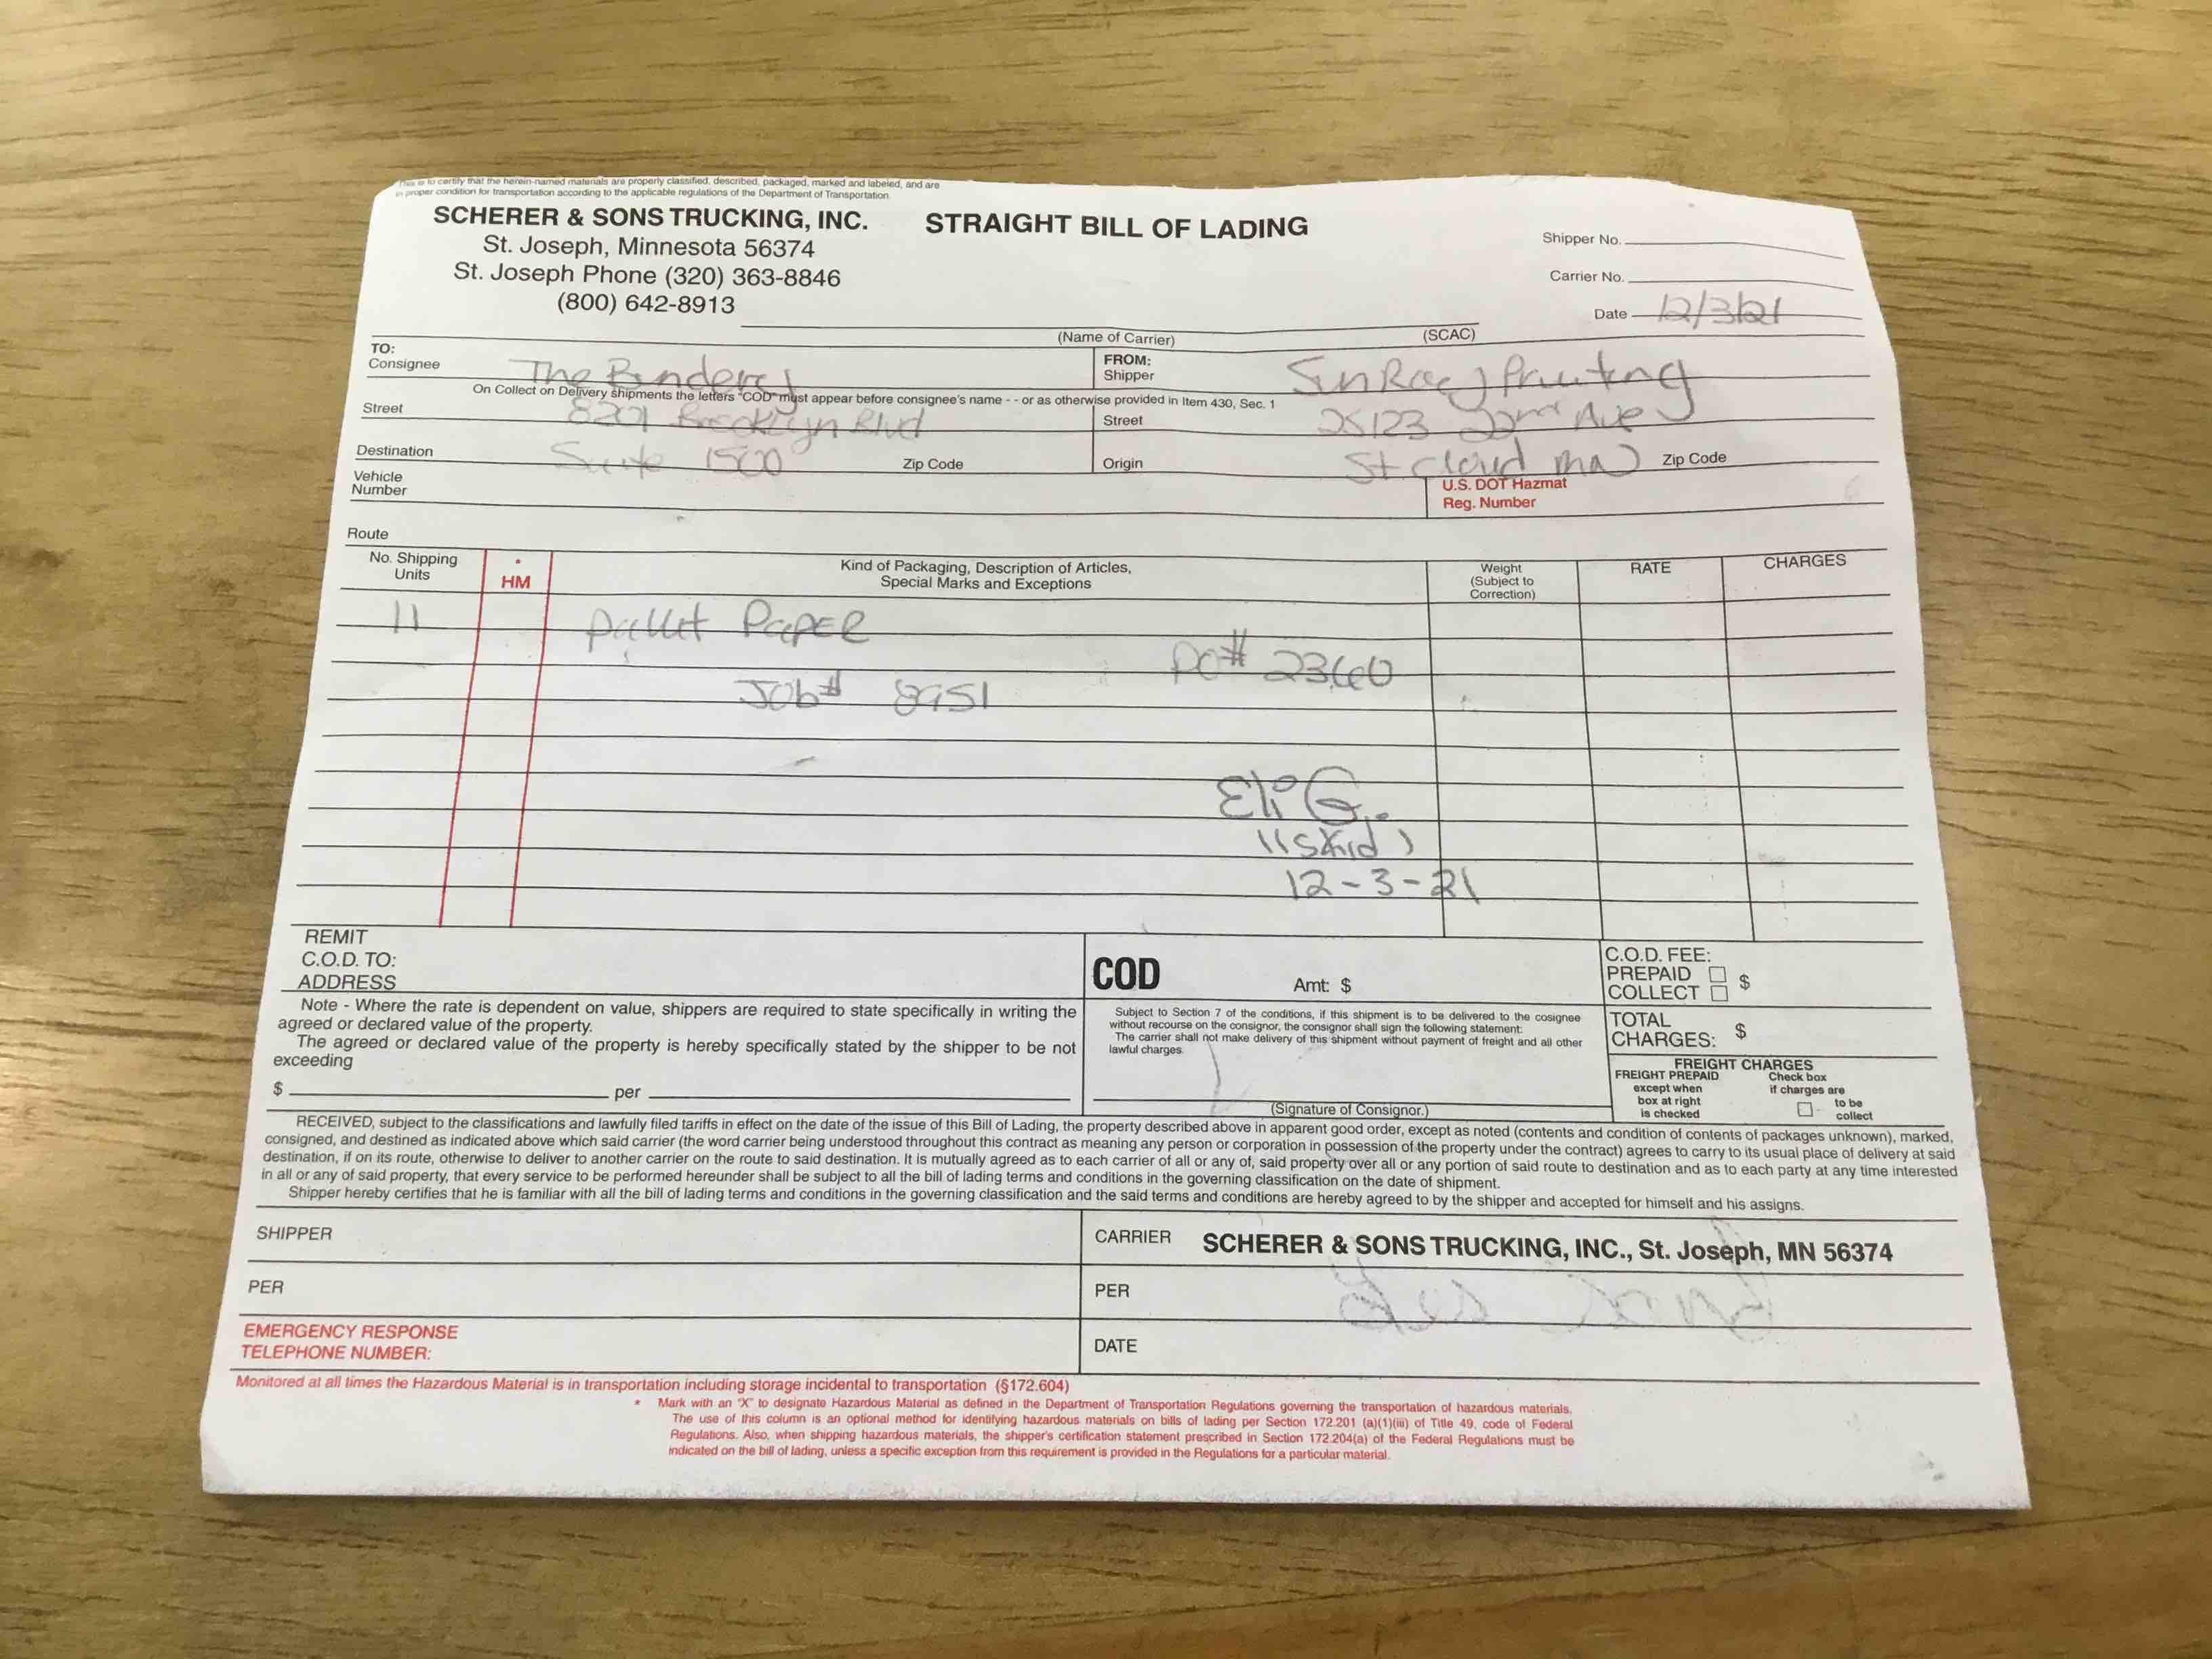 This is to certify that the herein-named materials are properly classified, described, packaged, marked and labeled, and are
in proper condition for transportation according to the applicable regulations of the Department of Transportation.
SCHERER & SONS TRUCKING, INC. STRAIGHT BILL OF LADING
St. Joseph, Minnesota 56374
St. Joseph Phone (320) 363-8846
(800) 642-8913
Shipper No.
Carrier No.
Date 12/3/21
(Name of Carrier) (SCAC)
TO:
Consignee The Bindery
FROM:
Shipper SunRay Printing
On Collect on Delivery shipments the letters "COD" must appear before consignee's name - - or as otherwise provided in Item 430, Sec. 1
Street 8201 Brooklyn Blvd
Street 25123 22nd Ave
Destination Suite 1500 Zip Code
Origin St Cloud mn Zip Code
Vehicle
Number
U.S. DOT Hazmat
Reg. Number
Route
No. Shipping
Units
*
HM
Kind of Packaging, Description of Articles,
Special Marks and Exceptions
Weight
(Subject to
Correction)
RATE
CHARGES
11 pallet PaPER
PO# 23660
Job# 8951
Eli G.
11 skid
12-3-21
REMIT
C.O.D. TO:
ADDRESS
COD Amt: $
C.O.D. FEE:
PREPAID $
COLLECT
Note - Where the rate is dependent on value, shippers are required to state specifically in writing the
agreed or declared value of the property.
The agreed or declared value of the property is hereby specifically stated by the shipper to be not
exceeding
$ per
Subject to Section 7 of the conditions, if this shipment is to be delivered to the cosignee
without recourse on the consignor, the consignor shall sign the following statement:
The carrier shall not make delivery of this shipment without payment of freight and all other
lawful charges.
(Signature of Consignor.)
TOTAL
CHARGES: $
FREIGHT CHARGES
FREIGHT PREPAID
except when
box at right
is checked
Check box
if charges are
to be
collect
RECEIVED, subject to the classifications and lawfully filed tariffs in effect on the date of the issue of this Bill of Lading, the property described above in apparent good order, except as noted (contents and condition of contents of packages unknown), marked,
consigned, and destined as indicated above which said carrier (the word carrier being understood throughout this contract as meaning any person or corporation in possession of the property under the contract) agrees to carry to its usual place of delivery at said
destination, if on its route, otherwise to deliver to another carrier on the route to said destination. It is mutually agreed as to each carrier of all or any of, said property over all or any portion of said route to destination and as to each party at any time interested
in all or any of said property, that every service to be performed hereunder shall be subject to all the bill of lading terms and conditions in the governing classification on the date of shipment.
Shipper hereby certifies that he is familiar with all the bill of lading terms and conditions in the governing classification and the said terms and conditions are hereby agreed to by the shipper and accepted for himself and his assigns.
SHIPPER
CARRIER SCHERER & SONS TRUCKING, INC., St. Joseph, MN 56374
PER
PER
EMERGENCY RESPONSE
TELEPHONE NUMBER:
DATE
Monitored at all times the Hazardous Material is in transportation including storage incidental to transportation (§172.604)
* Mark with an "X" to designate Hazardous Material as defined in the Department of Transportation Regulations governing the transportation of hazardous materials.
The use of this column is an optional method for identifying hazardous materials on bills of lading per Section 172.201 (a)(1)(iii) of Title 49, code of Federal
Regulations. Also, when shipping hazardous materials, the shipper's certification statement prescribed in Section 172.204(a) of the Federal Regulations must be
indicated on the bill of lading, unless a specific exception from this requirement is provided in the Regulations for a particular material.